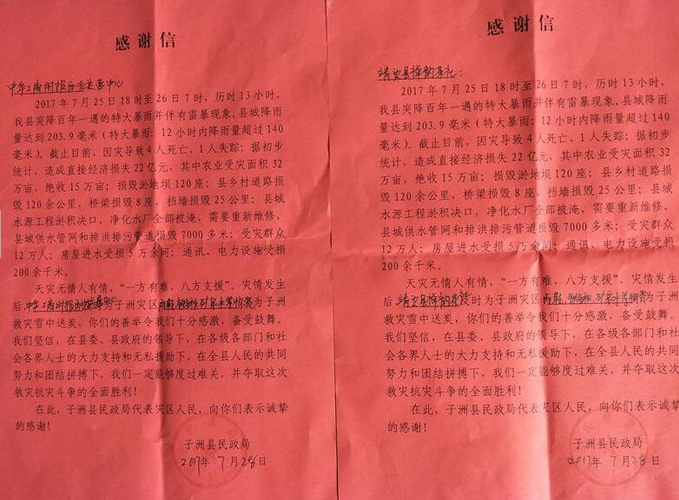 感谢信
中华工商时报
2017年7月25日18时至26日7时，历时13小时，
我县突降百年一遇的特大暴雨并伴有雷暴现象，县城降雨
量达到203.9毫米（特大暴雨：12小时内降雨量超过140
毫米）。截止目前，因灾导致4人死亡、1人失踪；据初步
统计，造成直接经济损失22亿元，其中农业受灾面积32
万亩，绝收15万亩；损毁淤地坝120座；县乡村道路损
毁120余公里，桥梁损毁8座，挡墙损毁25公里；县城
水源工程淤积决口，净化水厂全部被淹，需要重新维修，
县城供水管网和排洪排污管道损毁7000多米；受灾群众
12万人；房屋进水受损5万余间；通讯、电力设施受损
200余千米。
天灾无情人有情，“一方有难，八方支援”。灾情发生
后，中华工商时报 为子洲灾区 为子洲
救灾雪中送炭，你们的善举令我们十分感激，备受鼓舞。
我们坚信，在县委、县政府的领导下，在各级各部门和社
会各界人士的大力支持和无私援助下，在全县人民的共同
努力和团结拼搏下，我们一定能够度过难关，并夺取这次
救灾抗灾斗争的全面胜利！
在此，子洲县民政局代表灾区人民，向你们表示诚挚
的感谢！
子洲县民政局
2017年7月28日
感谢信
靖边县
2017年7月25日18时至26日7时，历时13小时，
我县突降百年一遇的特大暴雨并伴有雷暴现象，县城降雨
量达到203.9毫米（特大暴雨：12小时内降雨量超过140
毫米）。截止目前，因灾导致4人死亡、1人失踪；据初步
统计，造成直接经济损失22亿元，其中农业受灾面积32
万亩，绝收15万亩；损毁淤地坝120座；县乡村道路损
毁120余公里，桥梁损毁8座，挡墙损毁25公里；县城
水源工程淤积决口，净化水厂全部被淹，需要重新维修，
县城供水管网和排洪排污管道损毁7000多米；受灾群众
12万人；房屋进水受损5万余间；通讯、电力设施受损
200余千米。
天灾无情人有情，“一方有难，八方支援”。灾情发生
后，靖边县 时为子洲灾区 为子洲
救灾雪中送炭，你们的善举令我们十分感激，备受鼓舞。
我们坚信，在县委、县政府的领导下，在各级各部门和社
会各界人士的大力支持和无私援助下，在全县人民的共同
努力和团结拼搏下，我们一定能够度过难关，并夺取这次
救灾抗灾斗争的全面胜利！
在此，子洲县民政局代表灾区人民，向你们表示诚挚
的感谢！
子洲县民政局
2017年7月28日